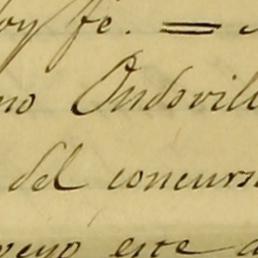 oy fe. =
no Ondovill
del concurs
este